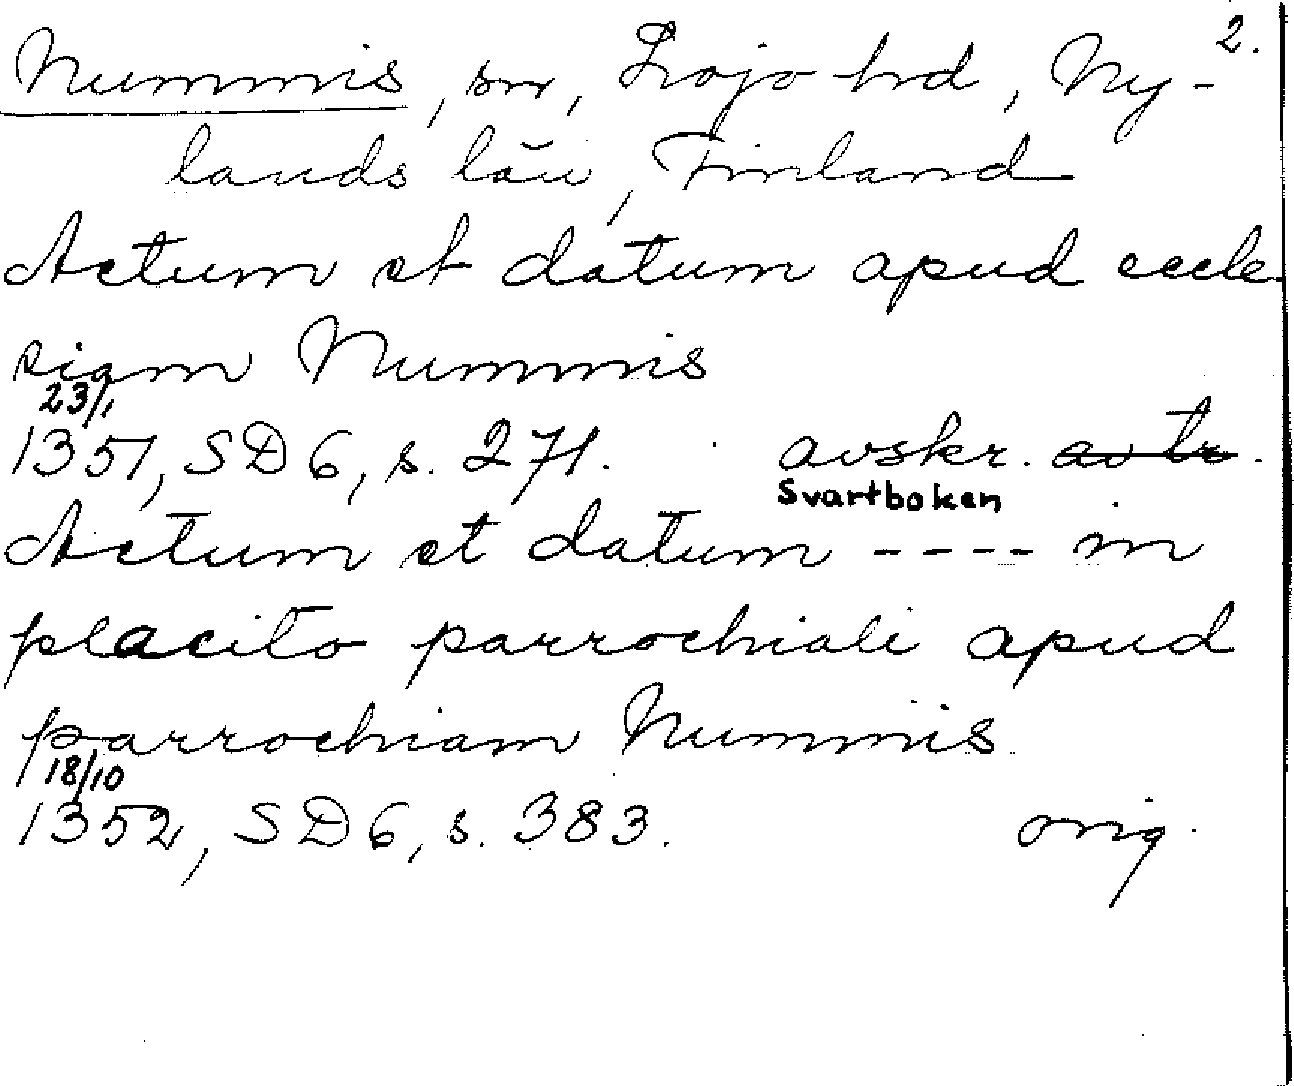 2.
Nummis, sn, Lojo hd, Ny-
lands län, Finland
Actum et datum apud eccle-
siam Nummis
23/1
1351, SD 6, s. 271. avskr. av tr.
Svartboken
Actum et datum ---- in
placito parrochiali apud
parrochiam Nummis
18/10
1352, SD 6, s. 383. orig.